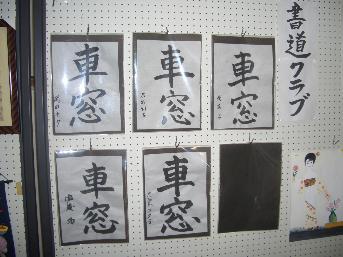 書道クラブ
車窓
車窓
車窓
車窓
車窓